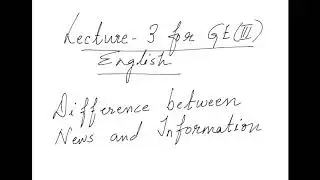 Lecture-3 for GE(III)
English
Difference between
News and Information